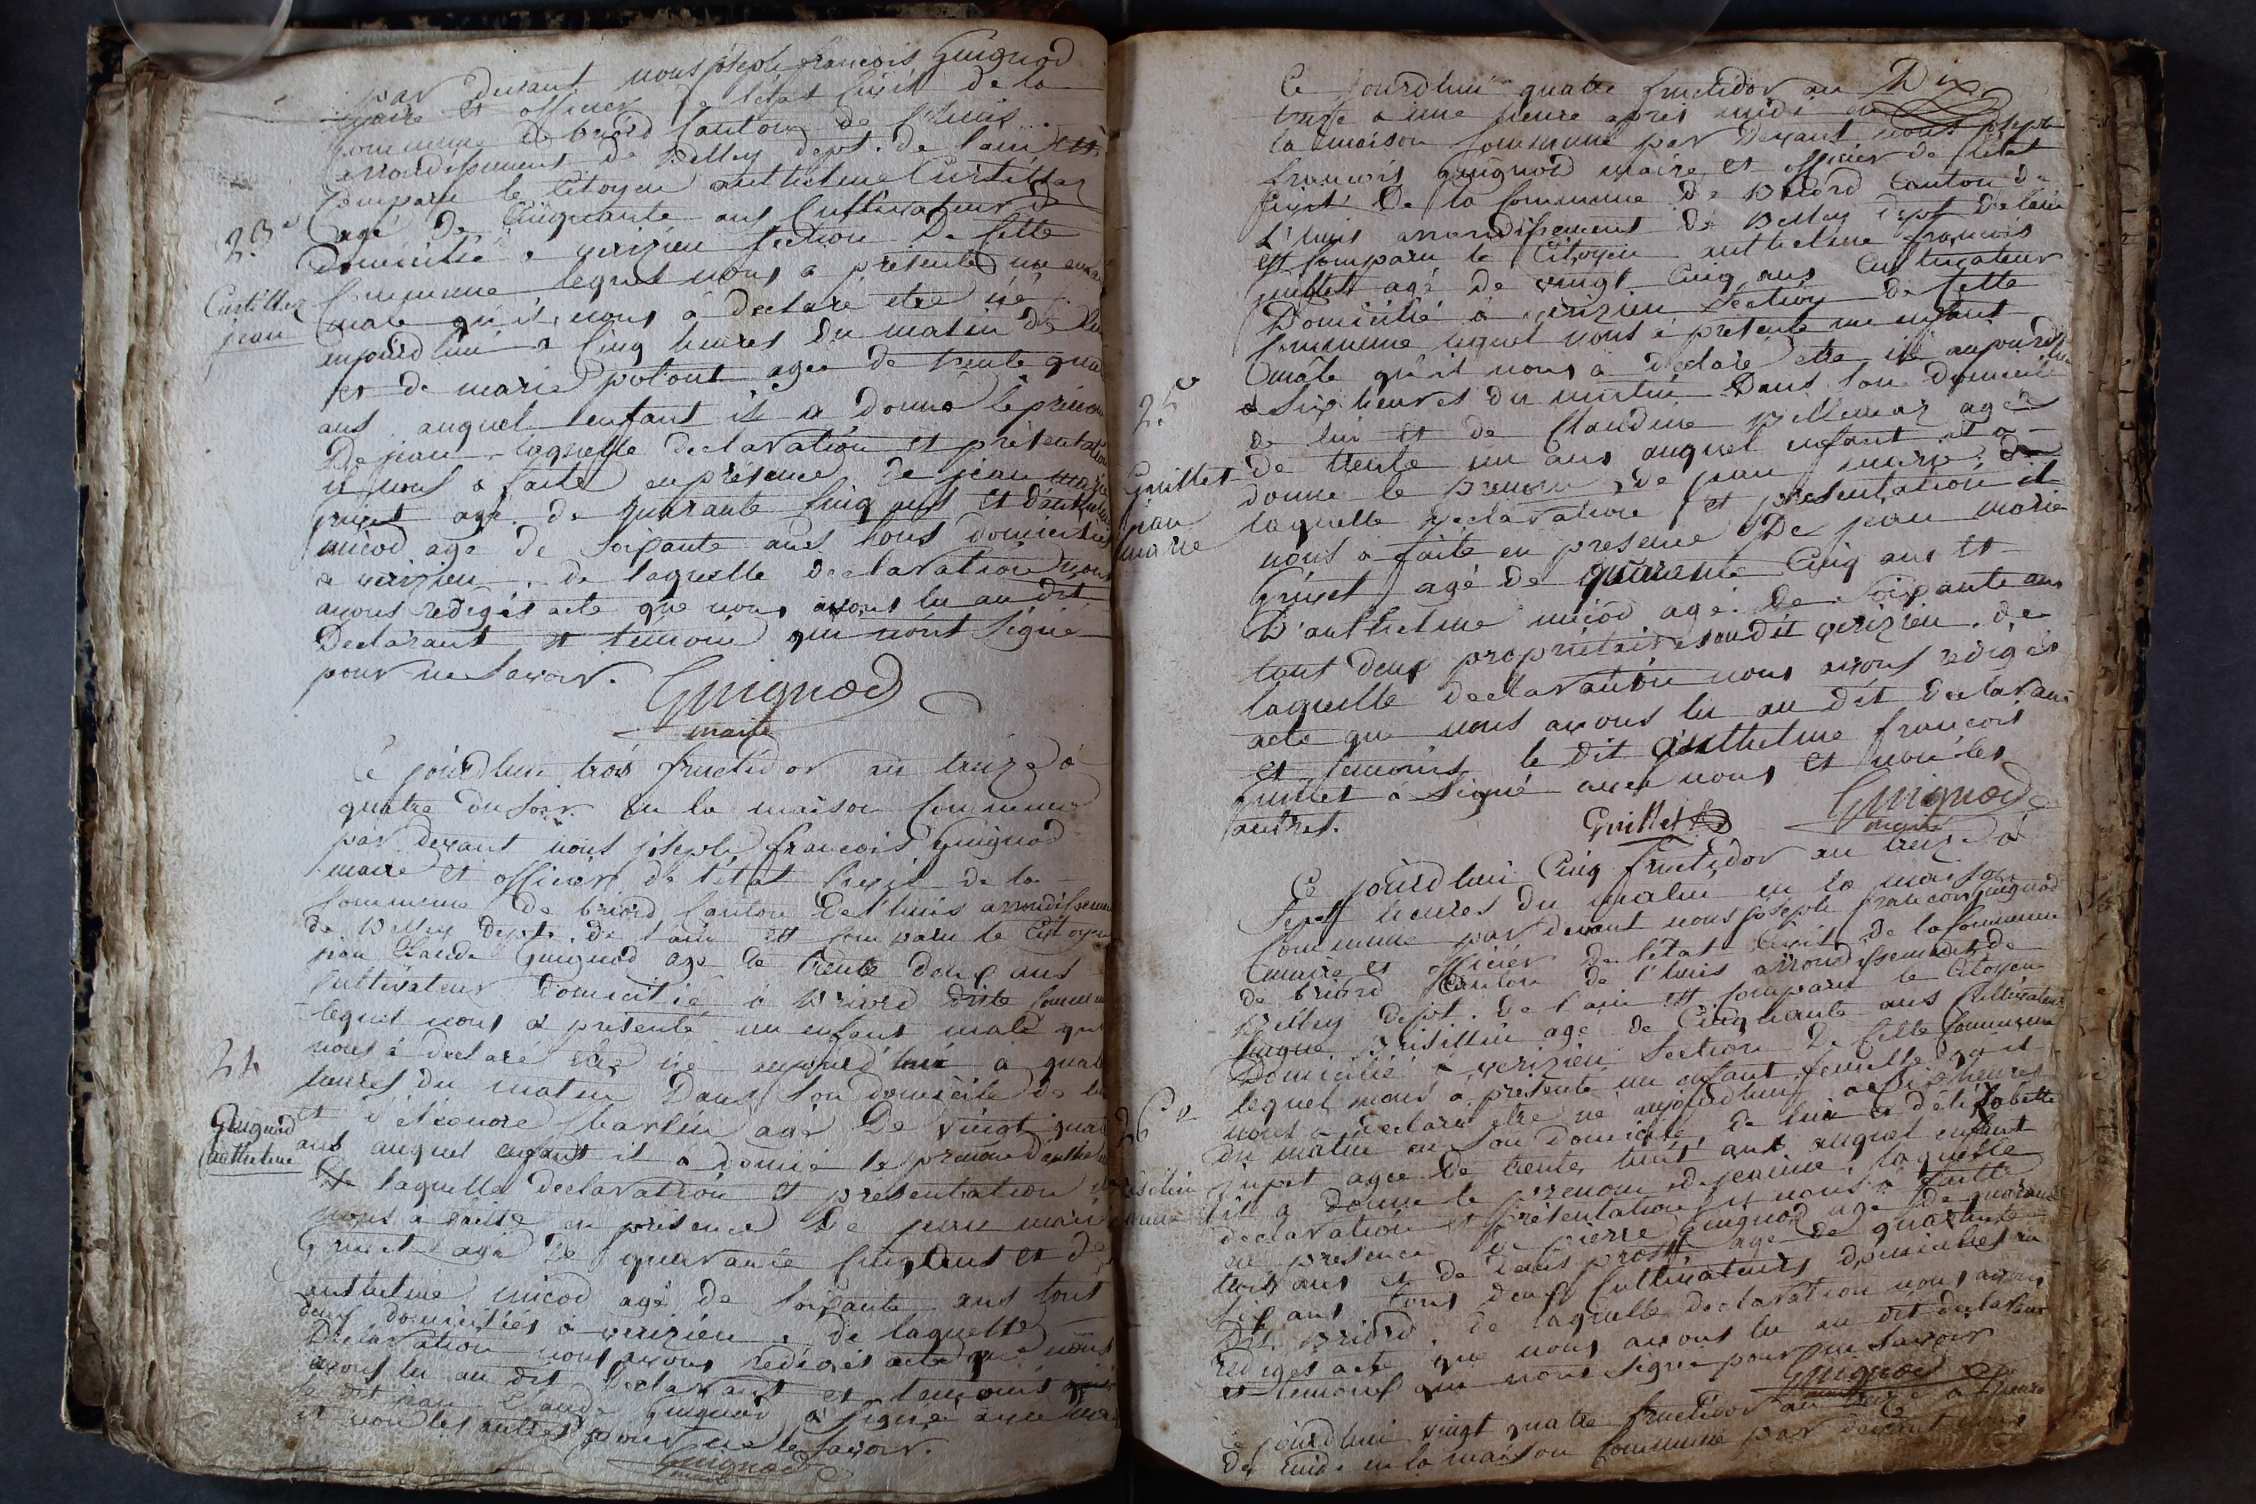 par devant nous joseph francois Guignod
maire et officier de l'état civil de la
commune de briord canton de l'huis
arrondissement de Belley dept. de l'ain est
comparu le Citoyen anthelme Curtillet
agé de Cinquante ans Cultivateur
23e
domicilié a verizieu section De Cette
Commune lequel nous a présenté un enfant
Curtillet
jean
male qu'il nous a declaré etre né
aujourd'hui a Cinq heures du matin de lui
et de marie agée de trente quatre
ans auquel enfant il a donné le prenom
De jean laquelle declaration et présentation
il nous a faite en présence de jean marie
grinet agé de quarante Cinq ans et d'anthelme
micod agé de soixante ans tous domiciliés
a verizieu. de laquelle declaration nous
avons redigés acte que nous avons lu au dit
Declarant et temoins qui n'ont signé
pour ne savoir.
Guignod
maire
Ce jourd'hui trois fructidor an treize a
quatre du soir en la maison Commune
par devant nous joseph francois Guignod
maire et officier de l'état Civil de la
Commune de briord Canton de l'huis arrondissement
de Belley dept. de l'ain est comparu le Citoyen
jean Claude Guignod agé de trente deux ans
Cultivateur domicilié à Briord dite Commune
lequel nous a présenté un enfant male qu'il
24
nous a declaré etre né aujourd'hui a quatre
heures du matin Dans son domicile de lui
et d'éléonore Charlin agée De vingt quatre
Guignod
anthelme
ans auquel enfant il a donné le prenom d'anthelme
laquelle declaration et présentation il
nous a faite en présence De jean marie
Grinet agé de quarante Cinq ans et de
anthelme micod agé de soixante ans tous
deux domiciliés a verizieu. de laquelle
Déclaration nous avons redigés acte que nous
avons lu au dit Declarant et temoins
le dit jean Claude Guignod a signé avec nous
et non les autres pour ne le savoir.
Guignod
maire
Ce jourd'hui quatre fructidor an Dix
treize a une heure après midi en
la maison Commune par Devant nous joseph
francois Guignod maire et officier de l'état
Civil De la Commune De Briord Canton de
L'huis arrondissement de Belley dept De l'ain
est Comparu le Citoyen anthelme francois
Guillet agé de vingt Cinq ans Cultivateur
Domicilié à verizieu Section De Cette
Commune lequel nous a présenté un enfant
male qu'il nous a declaré etre né aujourd'hui
25e
a Six heures du matin Dans son Domicile
de lui et de Claudine agée
de trente un ans auquel enfant il a
Guillet
jean
marie
donne le Prenom de jean marie. De
laquelle declaration et présentation il
nous a faite en présence De jean marie
Grinet agé de quarante Cinq ans et
D'anthelme micod agé De Soixante ans
tous deux propriétaires au dit verizieu. de
laquelle declaration nous avons redigés
acte que nous avons lu au Dit Declarant
et temoins le Dit anthelme francois
Guillet a Signé avec nous et non les
autres.
Guillet
Guignod
maire
Ce jourd'hui Cinq fructidor an treize a
Sept heures du matin en la maison
Commune par devant nous joseph francois Guignod
maire et officier de l'état Civil de la Commune
de briord Canton de l'huis arrondissement de
Belley dept. de l'ain est Comparu le Citoyen
agé de Cinquante ans Cultivateur
Domicilié a verizieu Section De Cette Commune
lequel nous a présenté un enfant femelle qu'il
26e
nous a declaré etre né aujourd'hui a Six heures
du matin en Son domicile, de lui et d'élizabette
agée de trente huit ans auquel enfant
il a donne le prenom de jeanne. laquelle
jeanne
declaration et présentation il nous a faite
en présence de pierre Guignod agé de quarante
trois ans et de agé de quarante
Six ans tous deux Cultivateurs domiciliés au
Dit Briord. de laquelle declaration nous avons
redigés acte que nous avons lu au dit declarant
et temoins qui n'ont Signé pour ne Savoir
Guignod
maire
Ce jourd'hui vingt quatre fructidor an treize a l'heure
De midi en la maison Commune par devant nous